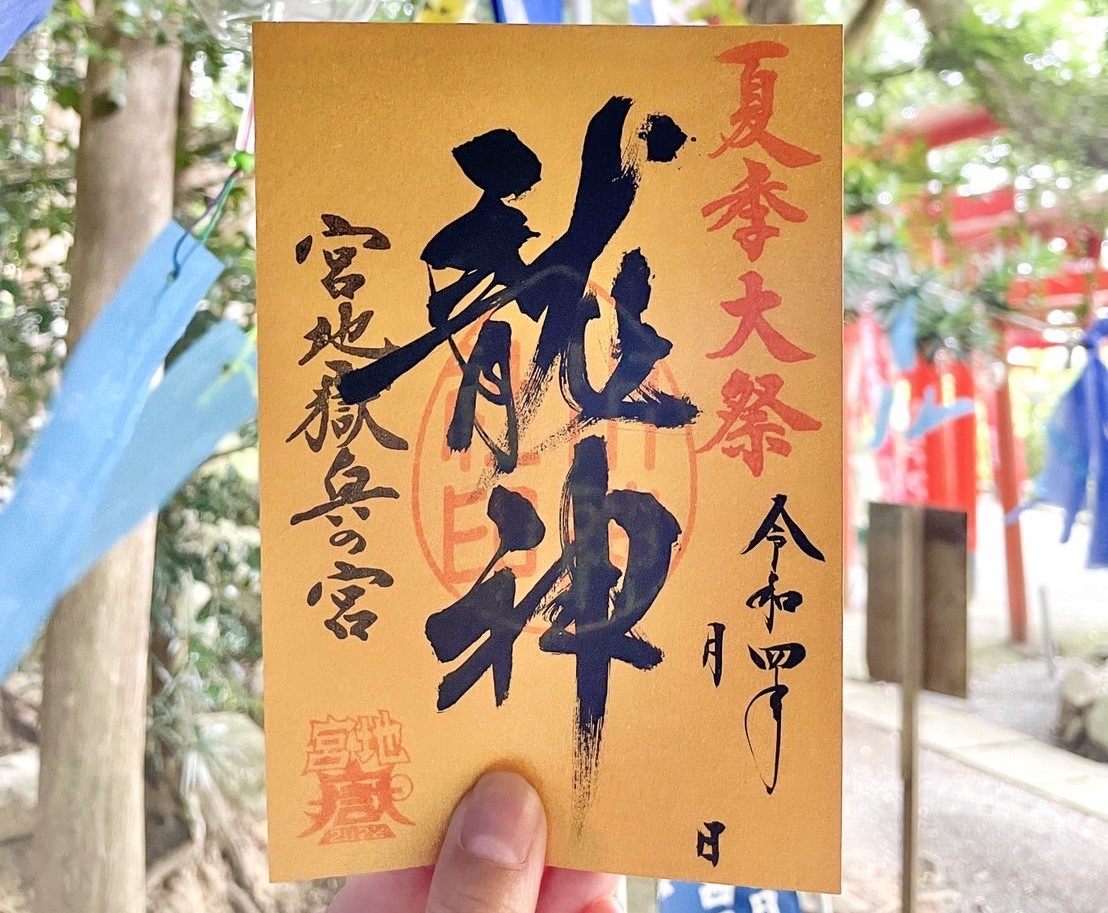 夏季大祭
令和四年
月
日
龍神
宮地嶽兵の宮
宮地
嶽